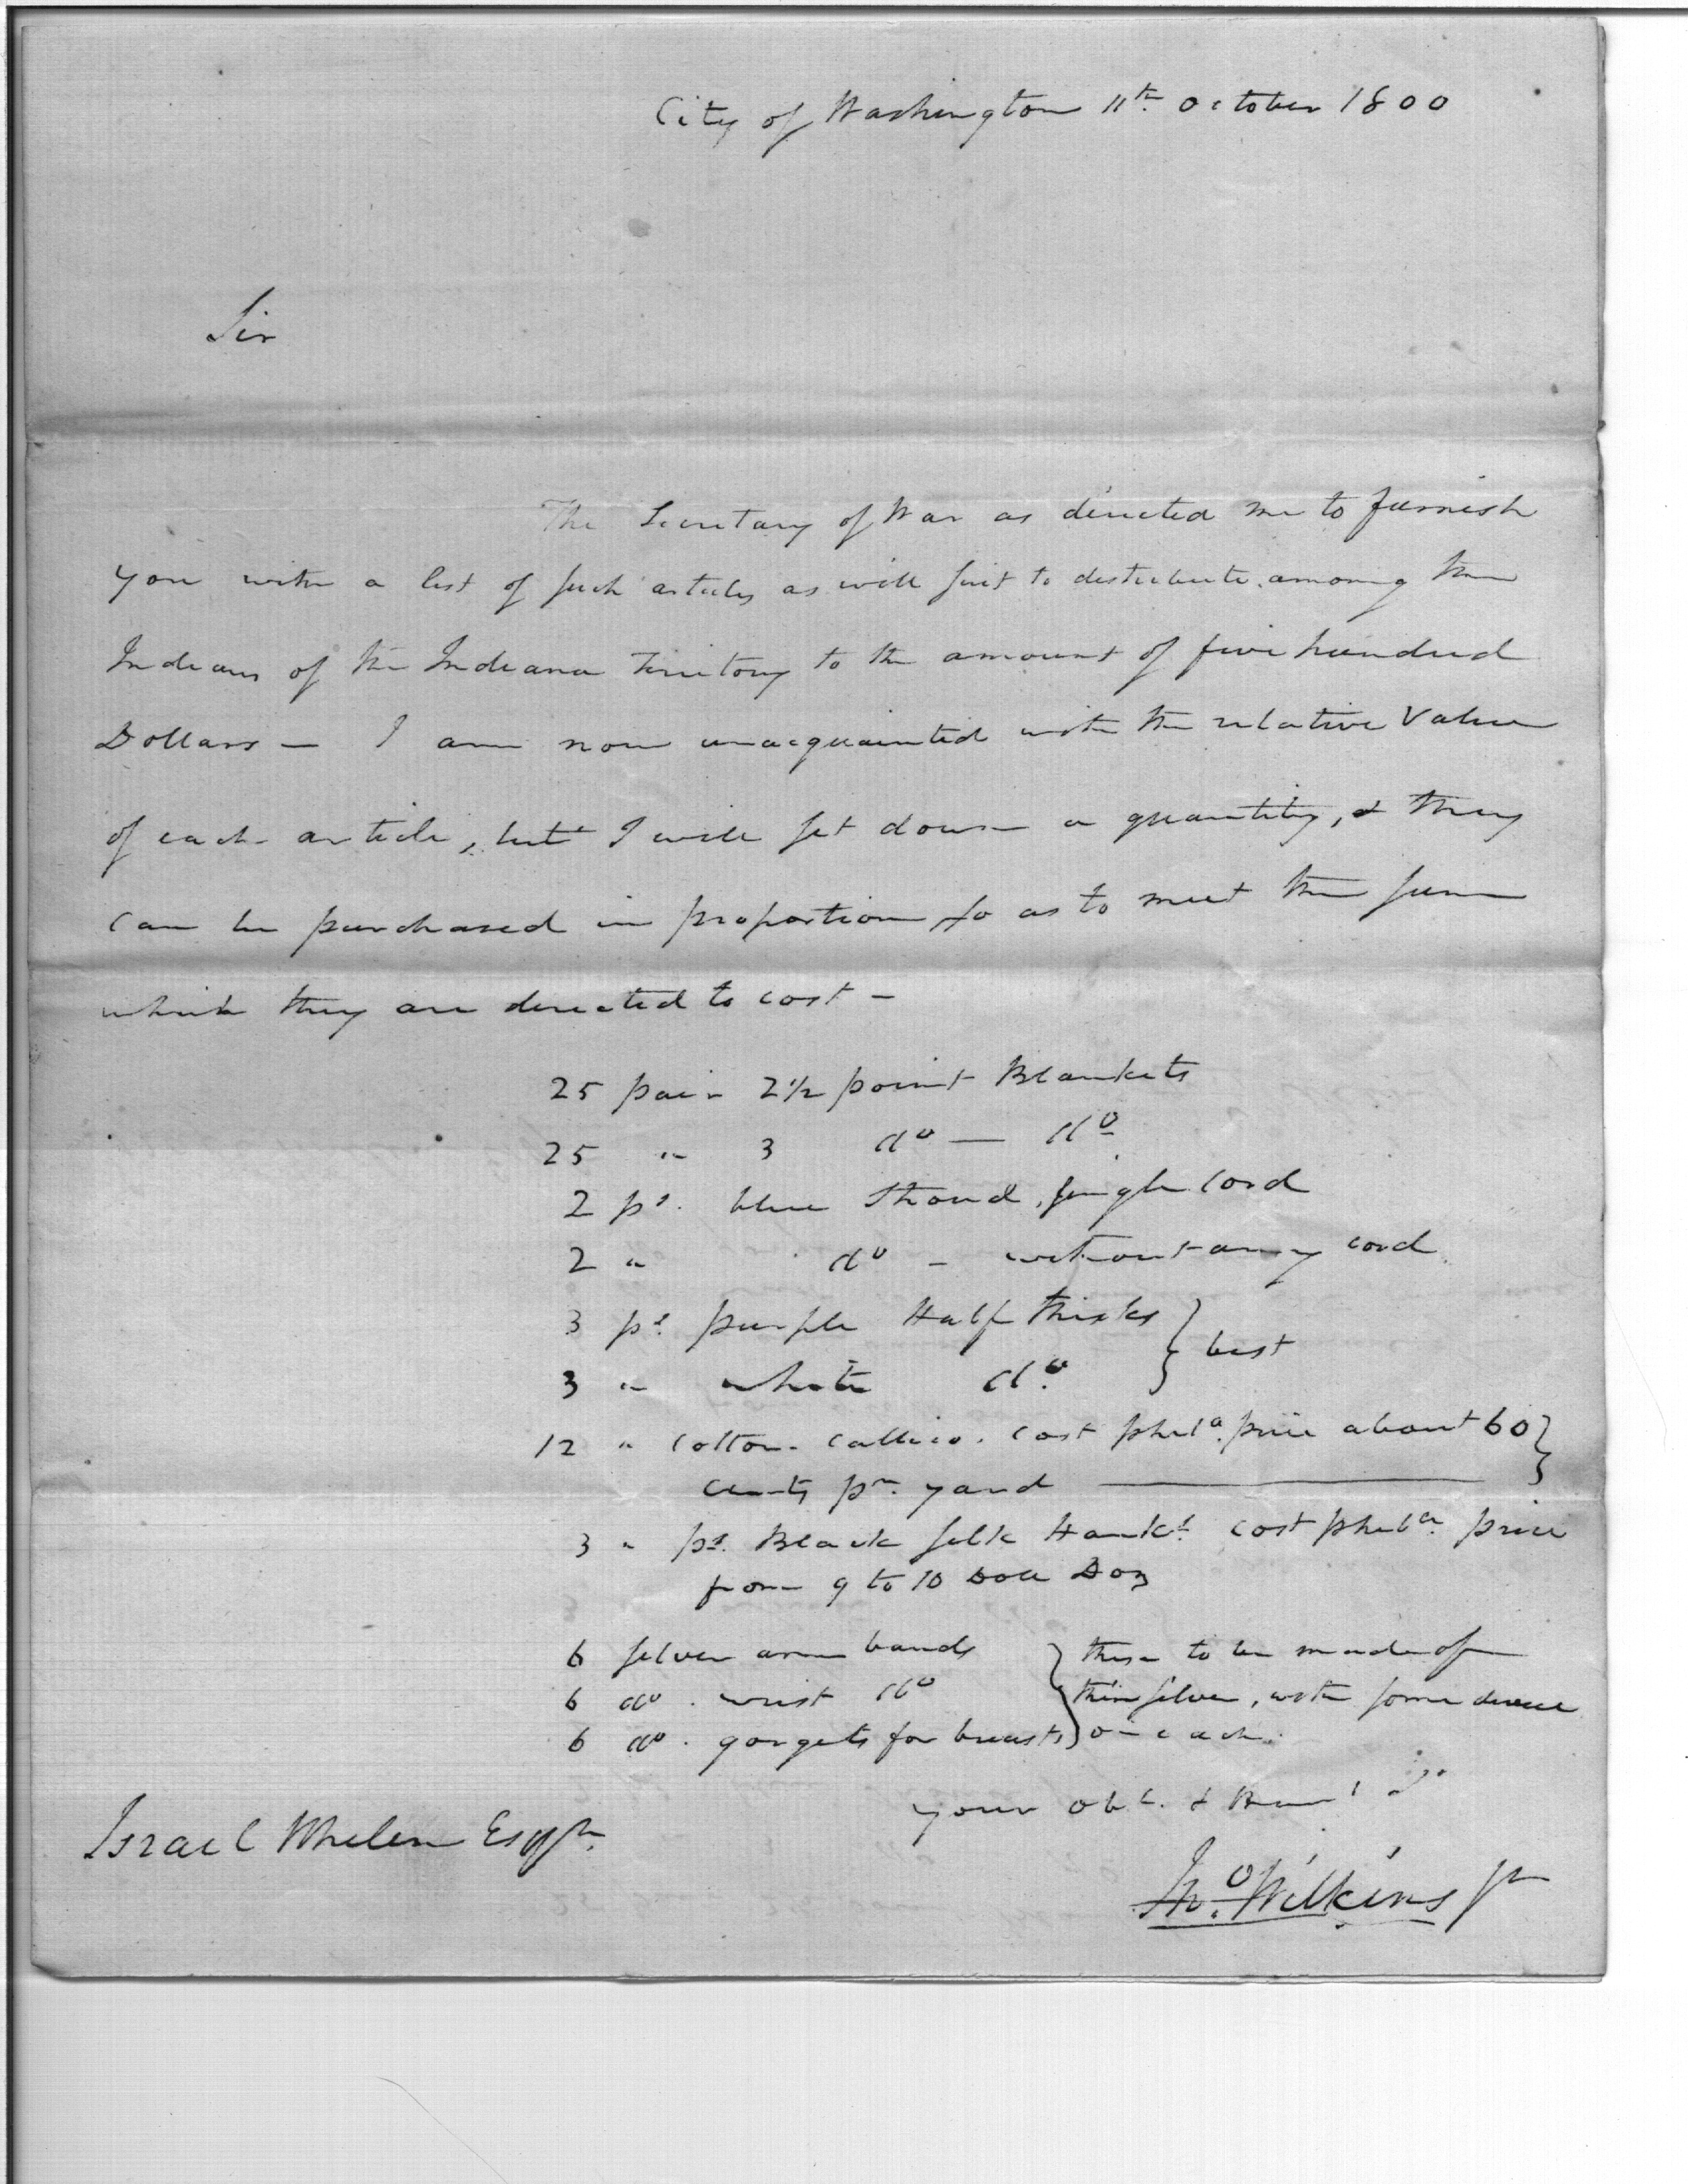 City of Washington 11th October 1800
Sir
The Secretary of War as directed me to furnish
you with a list of such articles as will suit to distribute among the
Indians of the Indiana Territory to the amount of five hundred
Dollars — I am now unacquainted with the relative Value
of each article, but I will set down a quantity, & they
can be purchased in proportion so as to meet the sum
which they are directed to cost —
25 pair 2½ point Blankets
25 " 3 do — do
2 ps. blue Stroud, single cord
2 " do — without any cord
3 ps. purple Half thicks } best
3 " white do
12 " Cotton Callico. cost phila. price about 60 }
cents pr. yard
3 " ps. Black silk Hankfs. cost phila. price
from 9 to 10 Doll Doz
6 silver arm bands } these to be made of
6 do. wrist do } thin silver, with some device
6 do. gorgets for breasts } on each.
your obt. & Hum
Israel Whelen Esqr.
Jno. Wilkins Jr